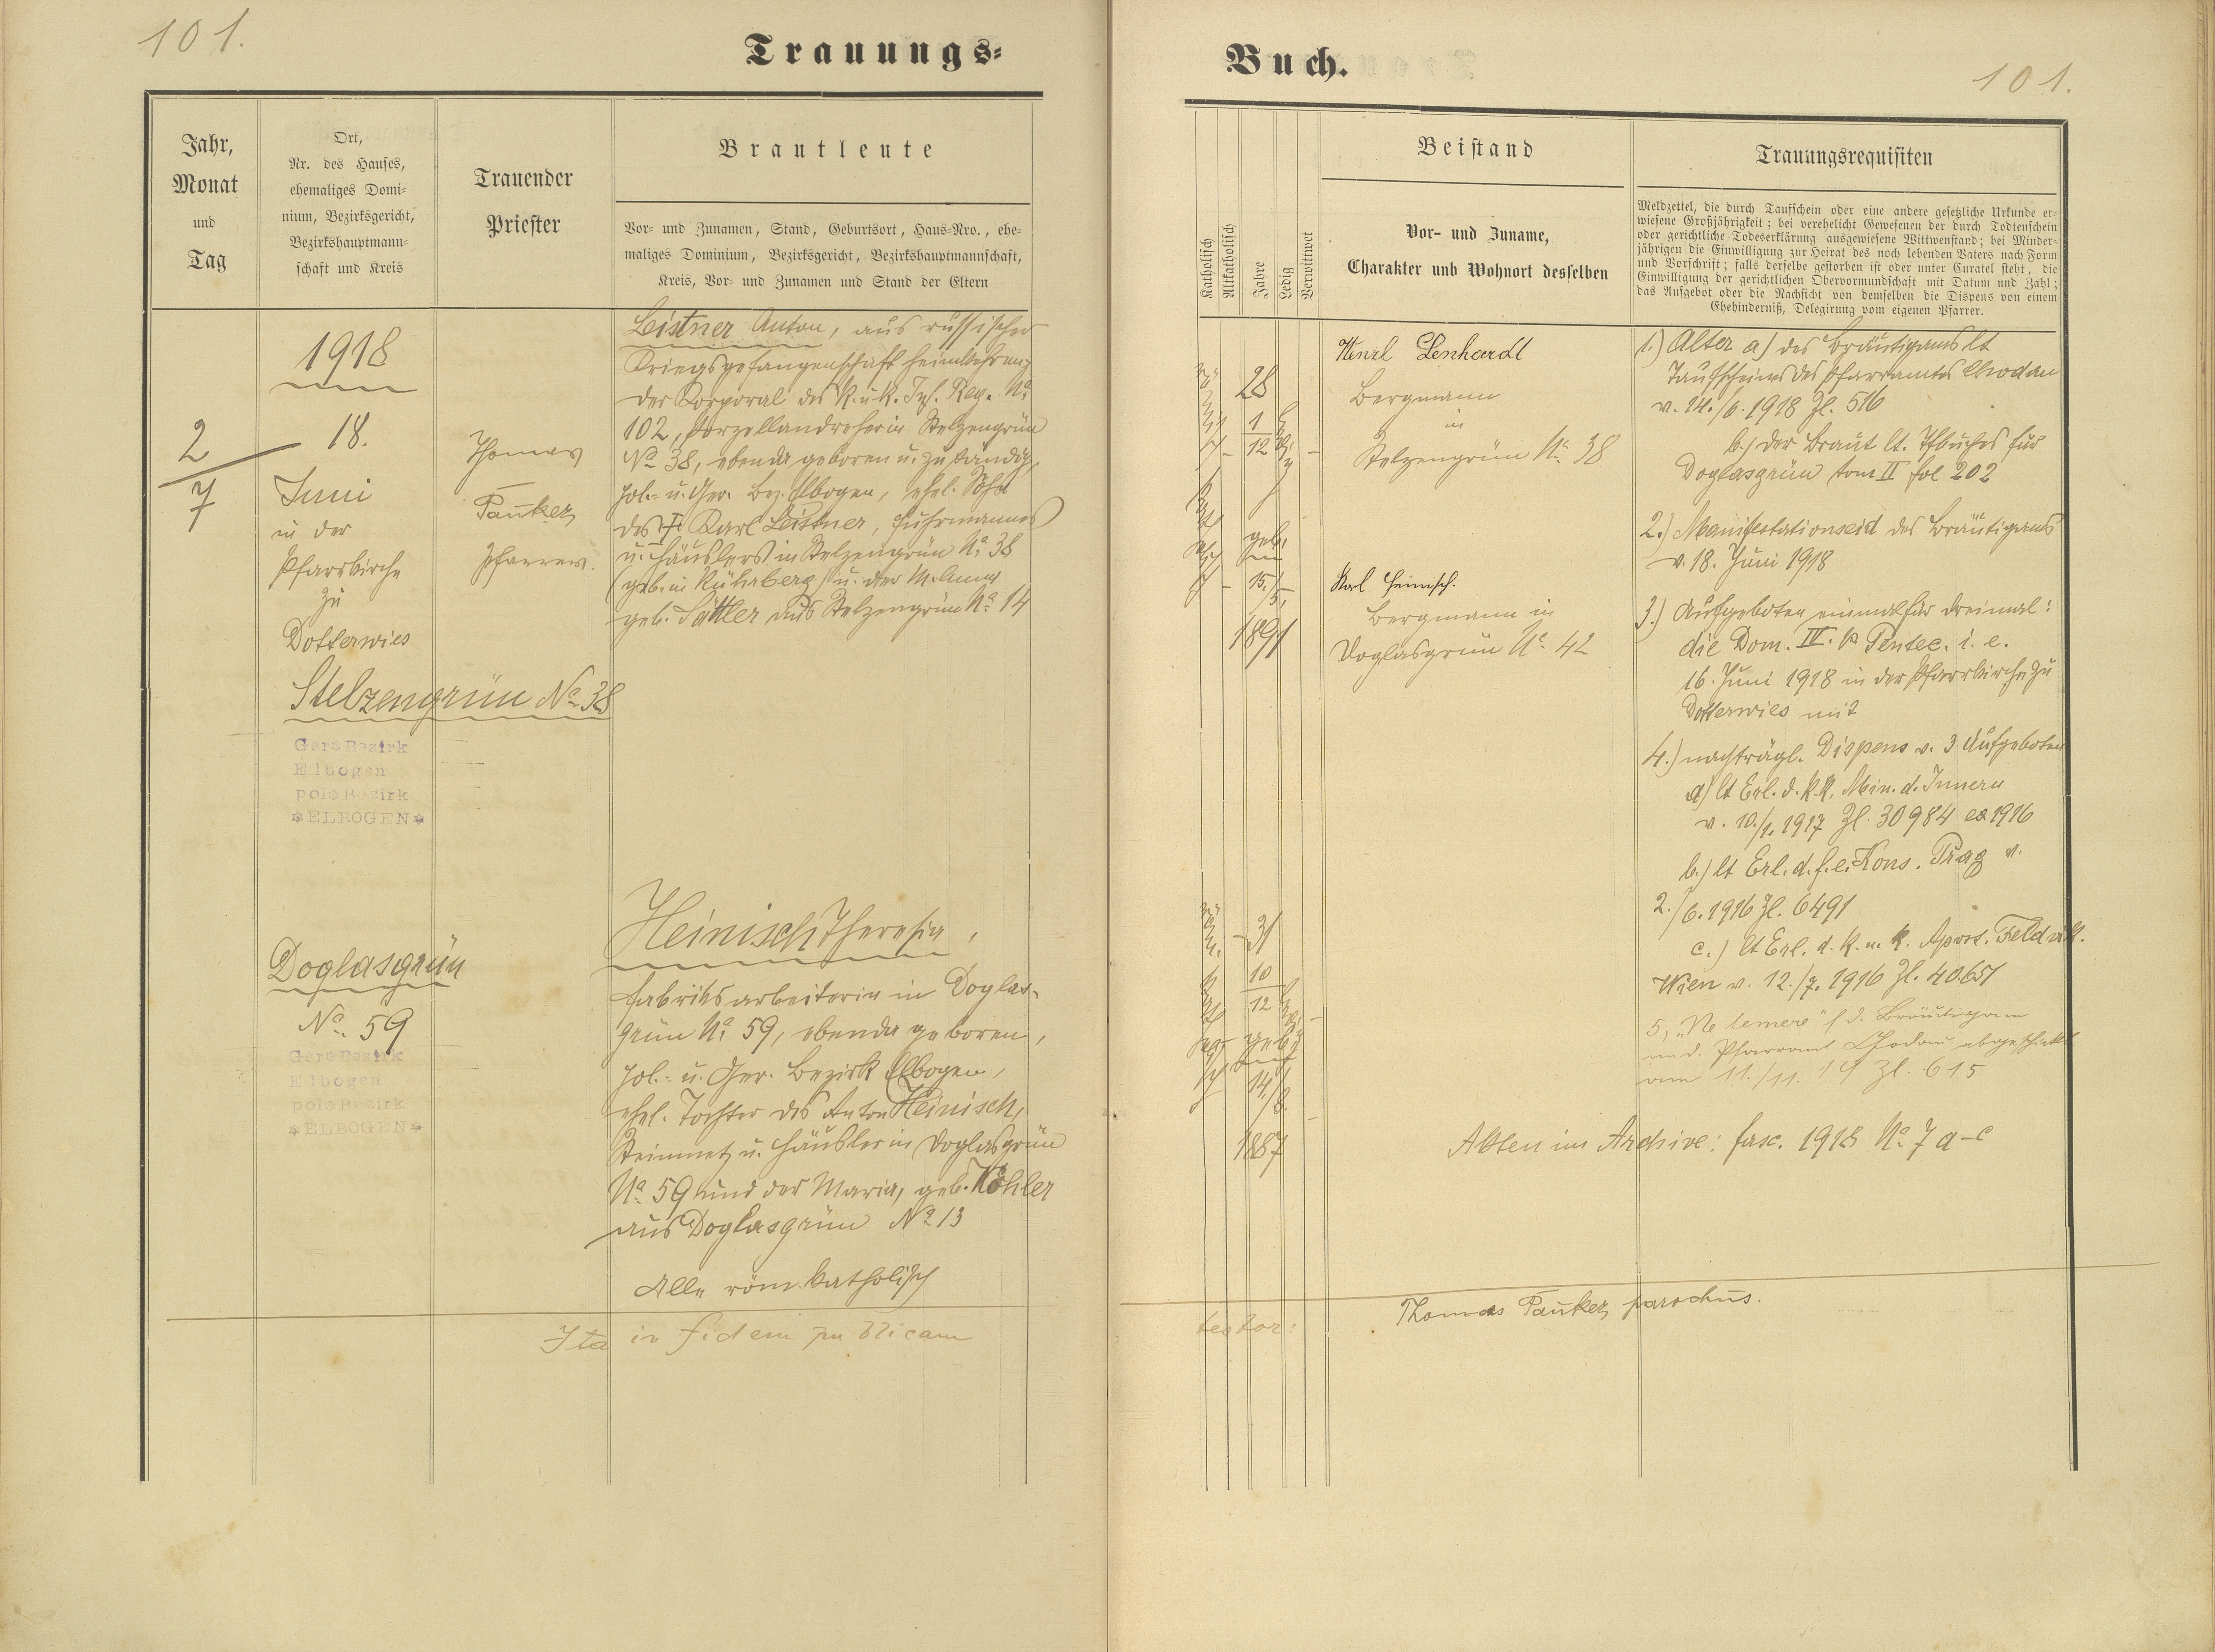 101.
Trauungs-
Jahr,
Monat
und
Tag
Ort,
Nr. des Hauses,
ehemaliges Domi-
nium, Bezirksgericht,
Bezirkshauptmann-
schaft und Kreis
Trauender
Priester
Brautleute
Vor- und Zunamen, Stand, Geburtsort, Haus-Nro., ehe-
maliges Dominium, Bezirksgericht, Bezirkshauptmannschaft,
Kreis, Vor- und Zunamen und Stand der Eltern
2
7
1918
18.
Juni
in der
Pfarrkirche
zu
Dotterwies
Stelzengrün No. 38
Ger. Bezirk
Elbogen
pol. Bezirk
ELBOGEN
Thomas
Pauker,
Pfarrer.
Leistner Anton, aus russischer
Kriegsgefangenschaft heimkehren-
der Korporal des k. u. k. Inf. Reg. No.
102, Porzellandreher in Stelzengrün
No. 38, ebenda geboren u. zuständig,
pol.- u. Ger. Bez. Elbogen, ehel. Sohn
des † Karl Leistner, Fuhrmannes
u. Häuslers in Stelzengrün No. 38
(geb. in Kühnberg) u. der M. Anna
geb. Sattler aus Stelzengrün No. 14
Doglasgrün
No. 59
Ger. Bezirk
Elbogen
pol. Bezirk
ELBOGEN
Heinisch Theresia,
Fabriksarbeiterin in Doglas-
grün No. 59, ebenda geboren,
pol.- u. Ger. Bezirk Elbogen,
ehel. Tochter des Anton Heinisch,
Steinmetz u. Häusler in Doglasgrün
No. 59 und der Maria, geb. Köhler
aus Doglasgrün No. 13
Alle röm. katholisch
Ita in fidem publicam
Buch.
101.
Katholisch
Altkatholisch
Jahre
Ledig
Verwitwet
Beistand
Vor- und Zuname,
Charakter und Wohnort desselben
Trauungsrequisiten
Meldzettel, die durch Taufschein oder eine andere gesetzliche Urkunde er-
wiesene Großjährigkeit; bei verehelicht Gewesenen der durch Todtenschein
oder gerichtliche Todeserklärung ausgewiesene Wittwenstand; bei Minder-
jährigen die Einwilligung zur Heirat des noch lebenden Vaters nach Form
und Vorschrift; falls derselbe gestorben ist oder unter Curatel steht, die
Einwilligung der gerichtlichen Obervormundschaft mit Datum und Zahl;
das Aufgebot oder die Nachsicht von demselben die Dispens von einem
Ehehinderniß, Delegirung vom eigenen Pfarrer.
28
1
12
geb.
15./
5.
1891
Wenzl Lenhardt
Bergmann
in
Stelzengrün No. 38
Karl Heinisch.
Bergmann in
Doglasgrün No. 42
31
10
12
geb.
14./
8.
1887
1.) Alter a) des Bräutigams lt
Taufscheines des Pfarramtes Chodau
v. 14./6. 1918 Zl. 516
b.) der Braut lt. Tfbuches für
Doglasgrün tom II fol 202
2.) Manifestationseid des Bräutigams
v. 18. Juni 1918
3.) Aufgeboten einmal für dreimal:
die Dom. IV. p Pentec. i. e.
16. Juni 1918 in der Pfarrkirche zu
Dotterwies mit
4.) nachträgl. Dispens v. 3 Aufgeboten
a) lt Erl. d. k. k. Min. d. Innern
v. 10./1. 1917 Zl. 30984 ex 1916
b.) lt Erl. d. f. e. Kons. Prag v.
2./6. 1916 Zl. 6491
c.) lt Erl. d. k. u. k. Apost. Feldvik.
Wien v. 12./7. 1916 Zl. 40651
5, "Ne temere" f. d. Bräutigam
an d. Pfarramt Chodau abgeschickt
am 11./11. 19 Zl. 615
Akten im Archive: fasc. 1918 No. 7 a-c
testor:
Thomas Pauker, parochus.